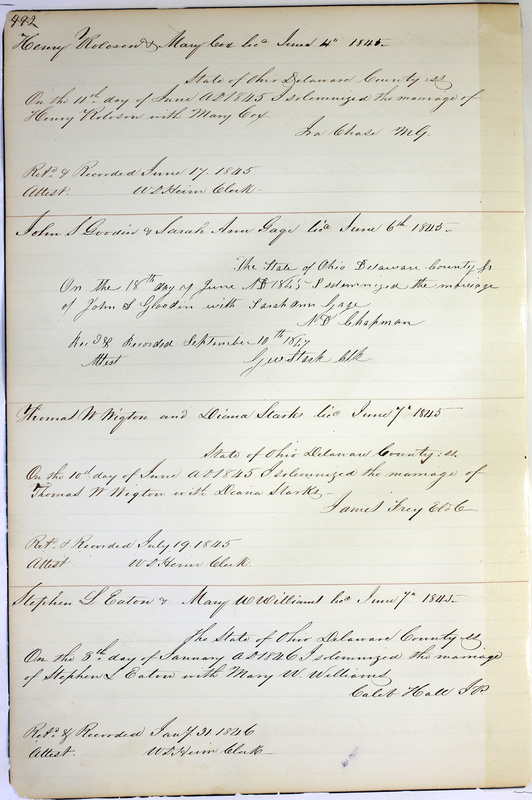 492
Henry Roloson & Mary Cox lic. June 4th 1845-
State of Ohio Delaware County ss
On the 11th day of June AD 1845 I solemnized the marriage of
Henry Roloson with Mary Cox.
Ira Chase M.G.
Ret.d & Recorded June 17. 1845
Attest. W D Heim Clerk.
John S Goodin & Sarah Ann Gage lic. June 6th 1845-
The State of Ohio Delaware County ss
On the 18th day of June AD 1845 I solemnized the marriage
of John S Goodin with Sarah Ann Gage
N.D. Chapman
Rec.d & Recorded September 10th 1847
Attest Geo Stark Clk
Thomas W Wigton and Diana Starks lic. June 7th 1845
State of Ohio Delaware County: ss.
On the 10th day of June AD 1845 I solemnized the marriage of
Thomas W Wigton with Deana Starks-
James Frey Eld C
Ret.d & Recorded July 19. 1845
Attest W D Heim Clerk
Stephen L Eaton & Mary W Williams lic. June 7th 1845-
The State of Ohio Delaware County ss
On the 8th day of January AD 1846 I solemnized the marriage
of Stephen L Eaton with Mary W. Williams
Caleb Hall JP
Ret.d & Recorded Jany 31. 1846
Attest. W D Heim Clerk-